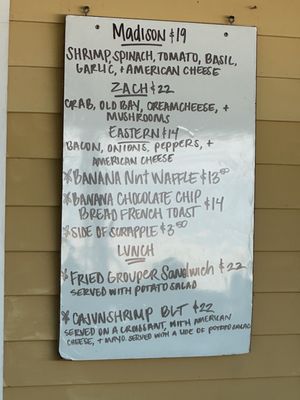 MADISON $19
SHRIMP, SPINACH, TOMATO, BASIL,
GARLIC, + AMERICAN CHEESE
ZACH $22
CRAB, OLD BAY, CREAMCHEESE, +
MUSHROOMS
EASTERN $14
BACON, ONIONS, PEPPERS, +
AMERICAN CHEESE
*BANANA NUT WAFFLE $13.50
*BANANA CHOCOLATE CHIP
BREAD FRENCH TOAST $14
*SIDE OF SCRAPPLE $3.50
LUNCH
*FRIED GROUPER SANDWICH $22
SERVED WITH POTATO SALAD
*CAJUN SHRIMP BLT $22
SERVED ON A CROISSANT, WITH AMERICAN
CHEESE, + MAYO. SERVED WITH A SIDE OF POTATO SALAD